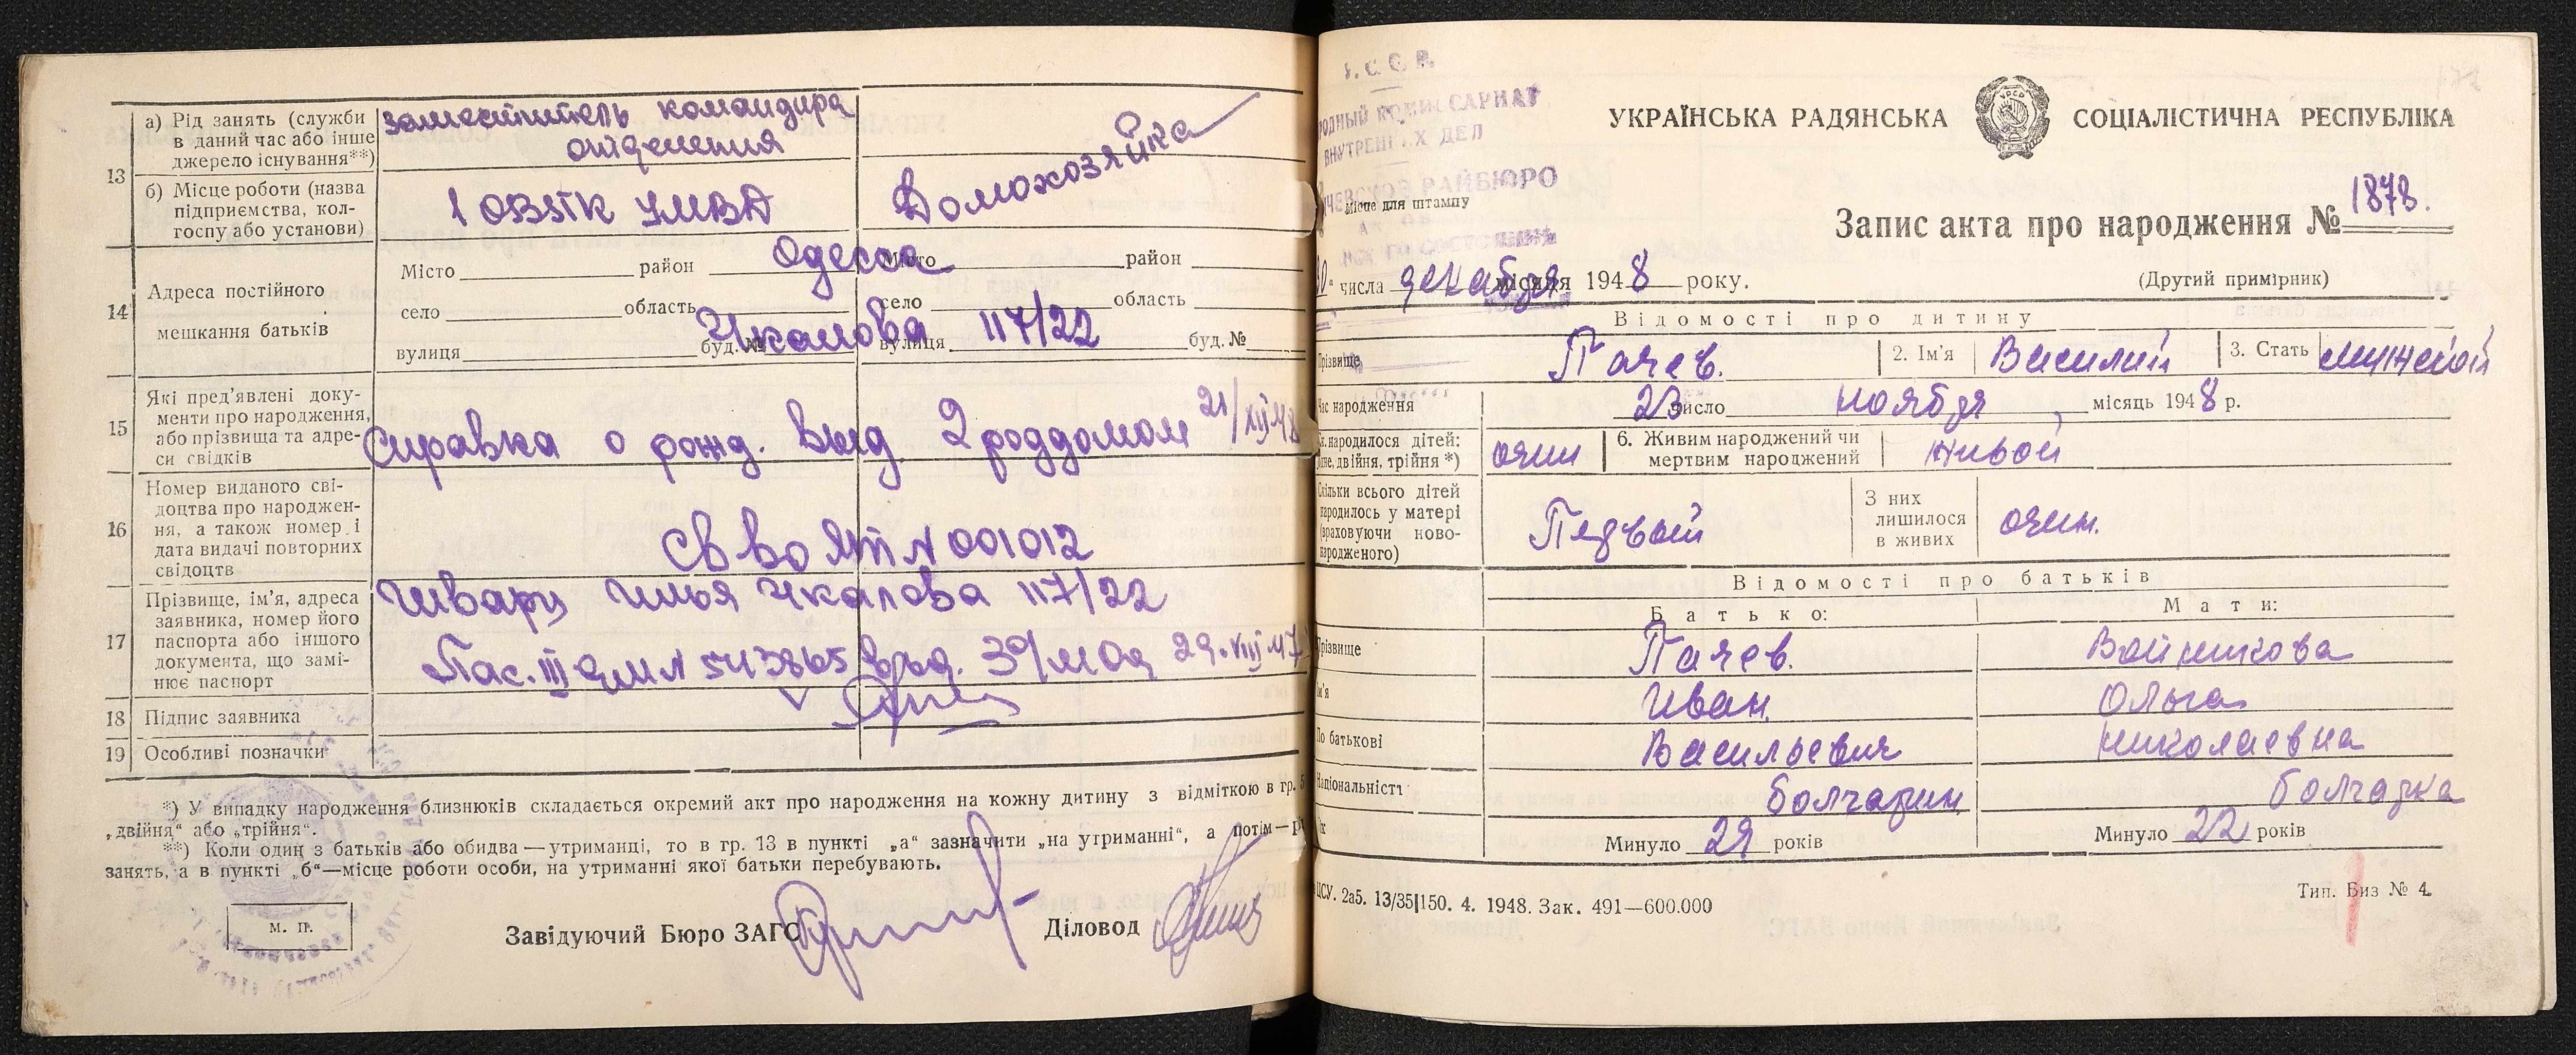 13
а) Рід занять (служби
в даний час або інше
джерело існування**)
заместитель командира
отделения
Домохозяйка
б) Місце роботи (назва
підприємства, кол-
госпу або установи)
1 ОВЗТК УМВД
14
Адреса постійного
мешкання батьків
Місто район Одесса Місто район
село область село область
вулиця буд. № Чкалова вулиця 117/22 буд. №
15
Які пред’явлені доку-
менти про народження,
або прізвища та адре-
си свідків
Справка о рожд. выд 2 роддомом 21/XII 48
16
Номер виданого сві-
доцтва про народжен-
ня, а також номер і
дата видачі повторних
свідоцтв
Св во ЯТП N 001012
17
Прізвище, ім’я, адреса
заявника, номер його
паспорта або іншого
документа, що замі-
нює паспорт
Шварц Илья Чкалова 117/22
Пас. III N 543865 выд. 3 о/мОд 29.VIII 47
18 Підпис заявника
19 Особливі позначки
*) У випадку народження близнюків складається окремий акт про народження на кожну дитину з відміткою в гр. 5
„двійня“ або „трійня“.
**) Коли один з батьків або обидва — утриманці, то в гр. 13 в пункті „а“ зазначити „на утриманні“, а потім — рі
занять, а в пункті „б“—місце роботи особи, на утриманні якої батьки перебувають.
М. П.
Завідуючий Бюро ЗАГС Діловод
У. С. С. Р.
РОДНЫЙ КОМИССАРИАТ
ВНУТРЕННИХ ДЕЛ
РАЙБЮРО
Місце для штампу
УКРАЇНСЬКА РАДЯНСЬКА СОЦІАЛІСТИЧНА РЕСПУБЛІКА
УРСР
Запис акта про народження № 1878.
30 " числа декабря місяця 1948 року.
(Другий примірник)
Відомості про дитину
Прізвище Пачев. 2. Ім’я Василий 3. Стать мужской
Час народження 23 число ноября місяць 1948 р.
народилося дітей:
двійня, трійня *) один
6. Живим народжений чи
мертвим народжений живой
Скільки всього дітей
народилось у матері
(враховуючи ново-
народженого) Первый
З них
лишилося
в живих один.
Відомості про батьків
Батько: Мати:
Прізвище Пачев. Войникова
Ім’я Иван Ольга
По батькові Васильевич Николаевна
Національність болгарин болгарка
Вік Минуло 29 років Минуло 22 років
ЦСУ. 2а5. 13/35|150. 4. 1948. Зак. 491—600.000
Тип. Виз № 4.